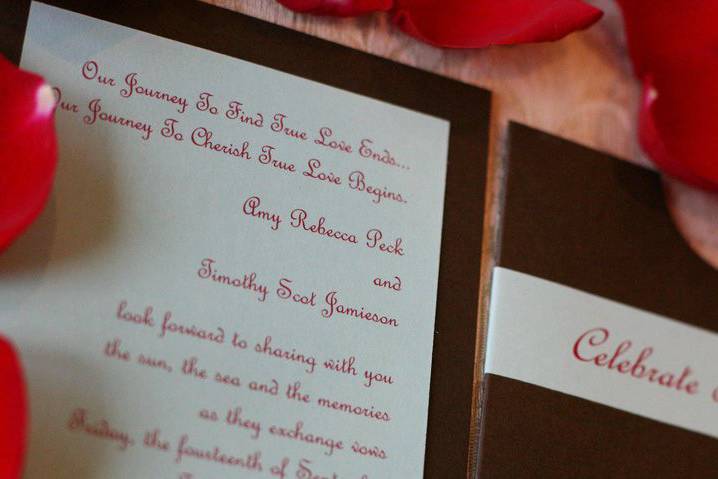 Our Journey To Find True Love Ends...
Our Journey To Cherish True Love Begins.
Amy Rebecca Peck
and
Timothy Scot Jamieson
look forward to sharing with you
the sun, the sea and the memories
as they exchange vows
Friday, the fourteenth of
Celebrate